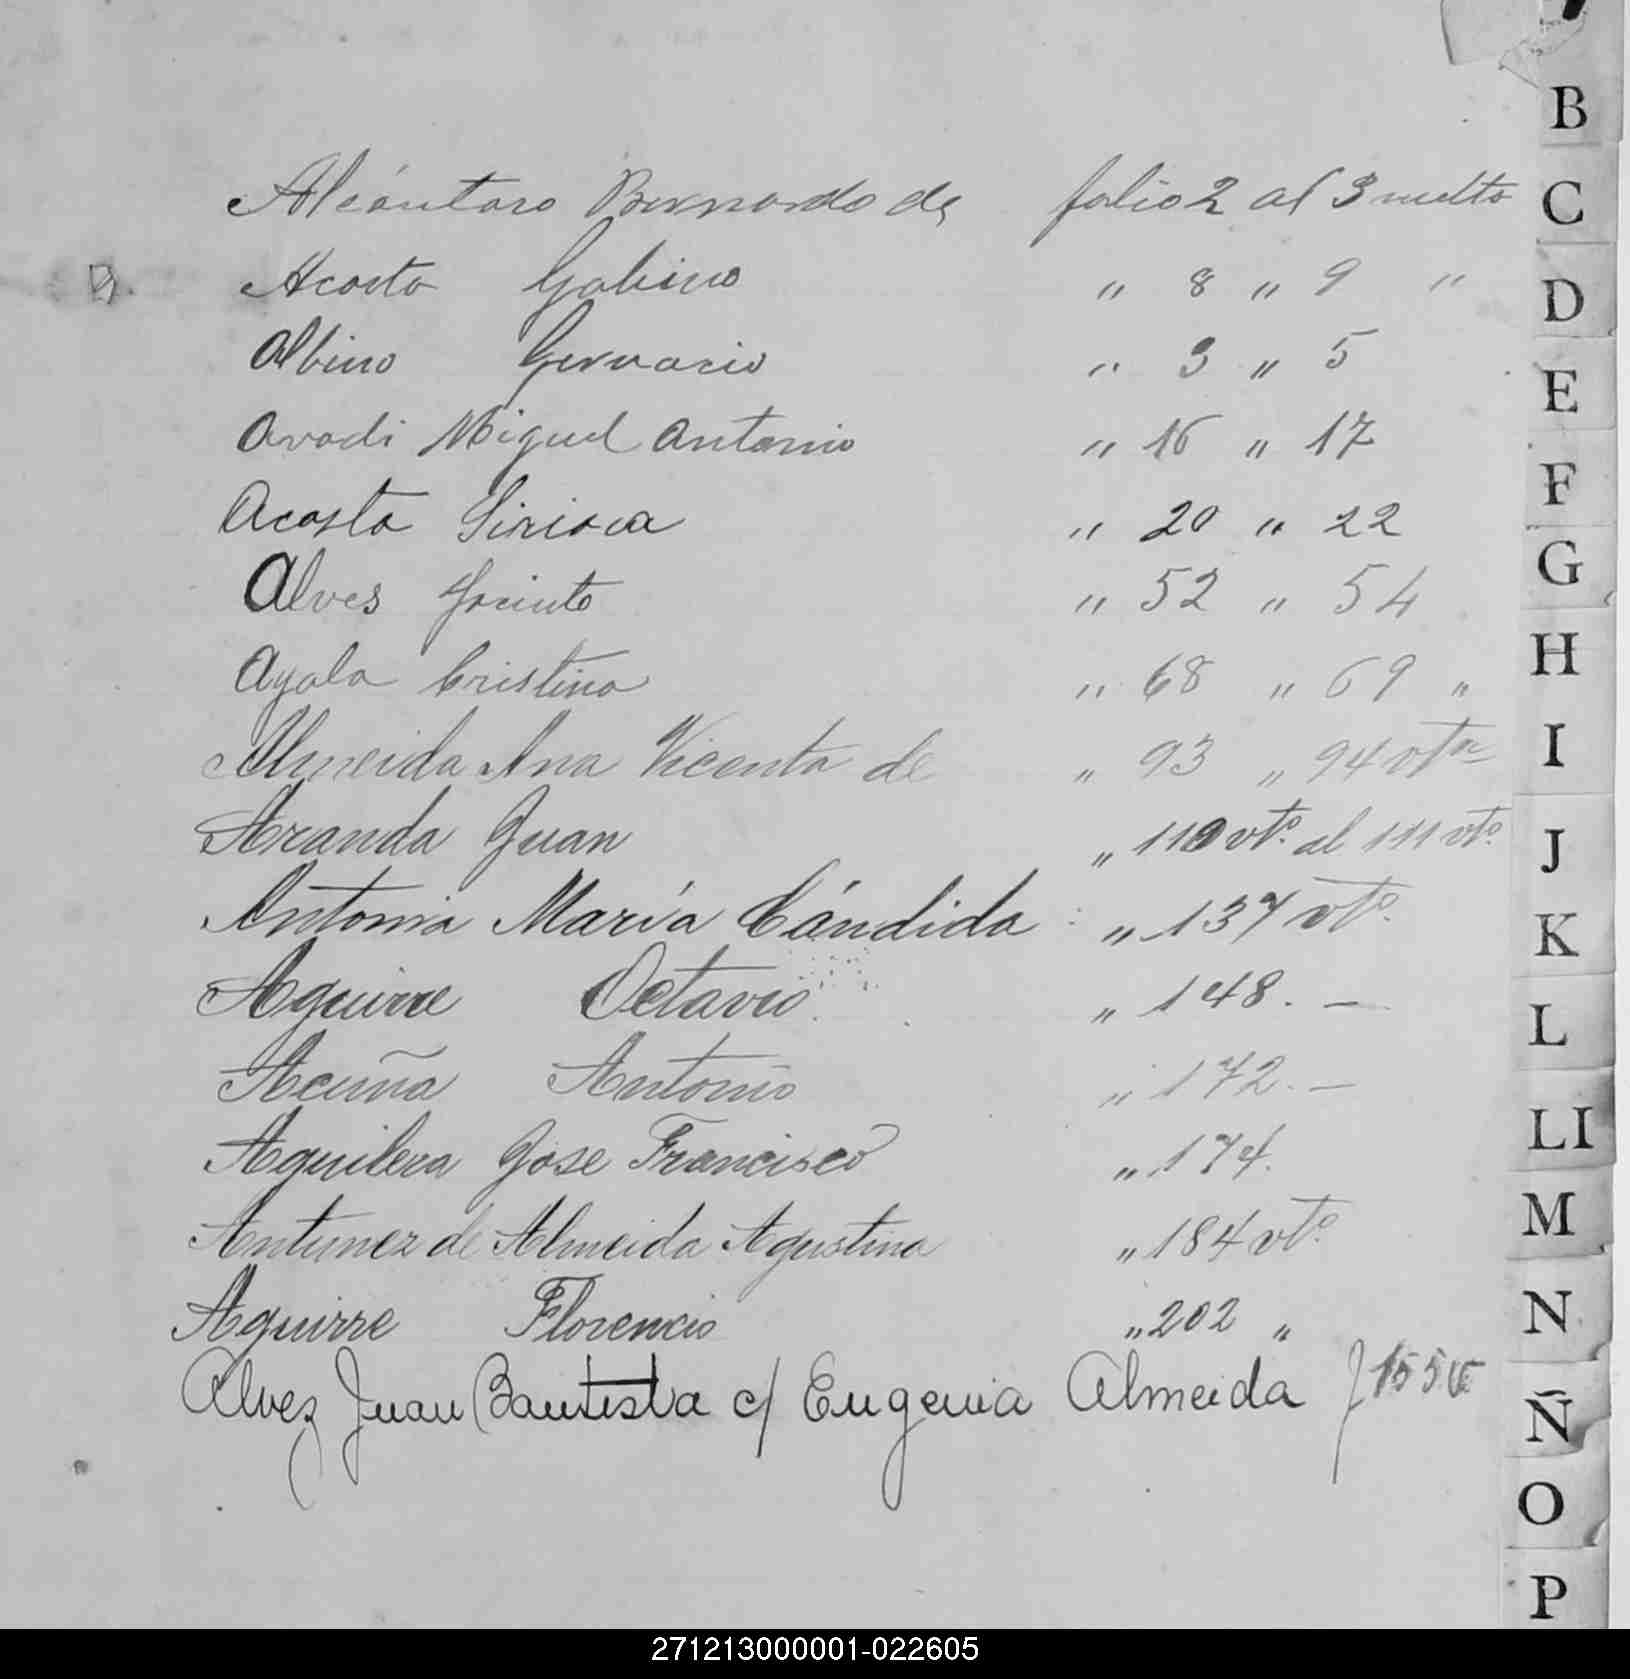 Alcántara Bernardo de folio 2 al 3 vuelto
Acosta Gabino " 8 " 9 "
Albino Gervacio " 3 " 5
Avadi Miguel Antonio " 16 " 17
Acosta Siriaca " 20 " 22
Alves Jacinto " 52 " 54
Ayala Cristina " 68 " 69 "
Almeida Ana Vicenta de " 93 " 94 vto
Aranda Juan " 110 vto. al 111 vto.
Antonia María Cándida " 137 vto.
Aguirre Octavio " 148. —
Acuña Antonio " 172. —
Aguilera Jose Francisco " 174.
Antunez de Almeida Agustina " 184 vto.
Aguirre Florencio " 202 "
Alvez Juan Bautista c/ Eugenia Almeida f
B
C
D
E
F
G
H
I
J
K
L
LI
M
N
Ñ
O
P
271213000001-022605